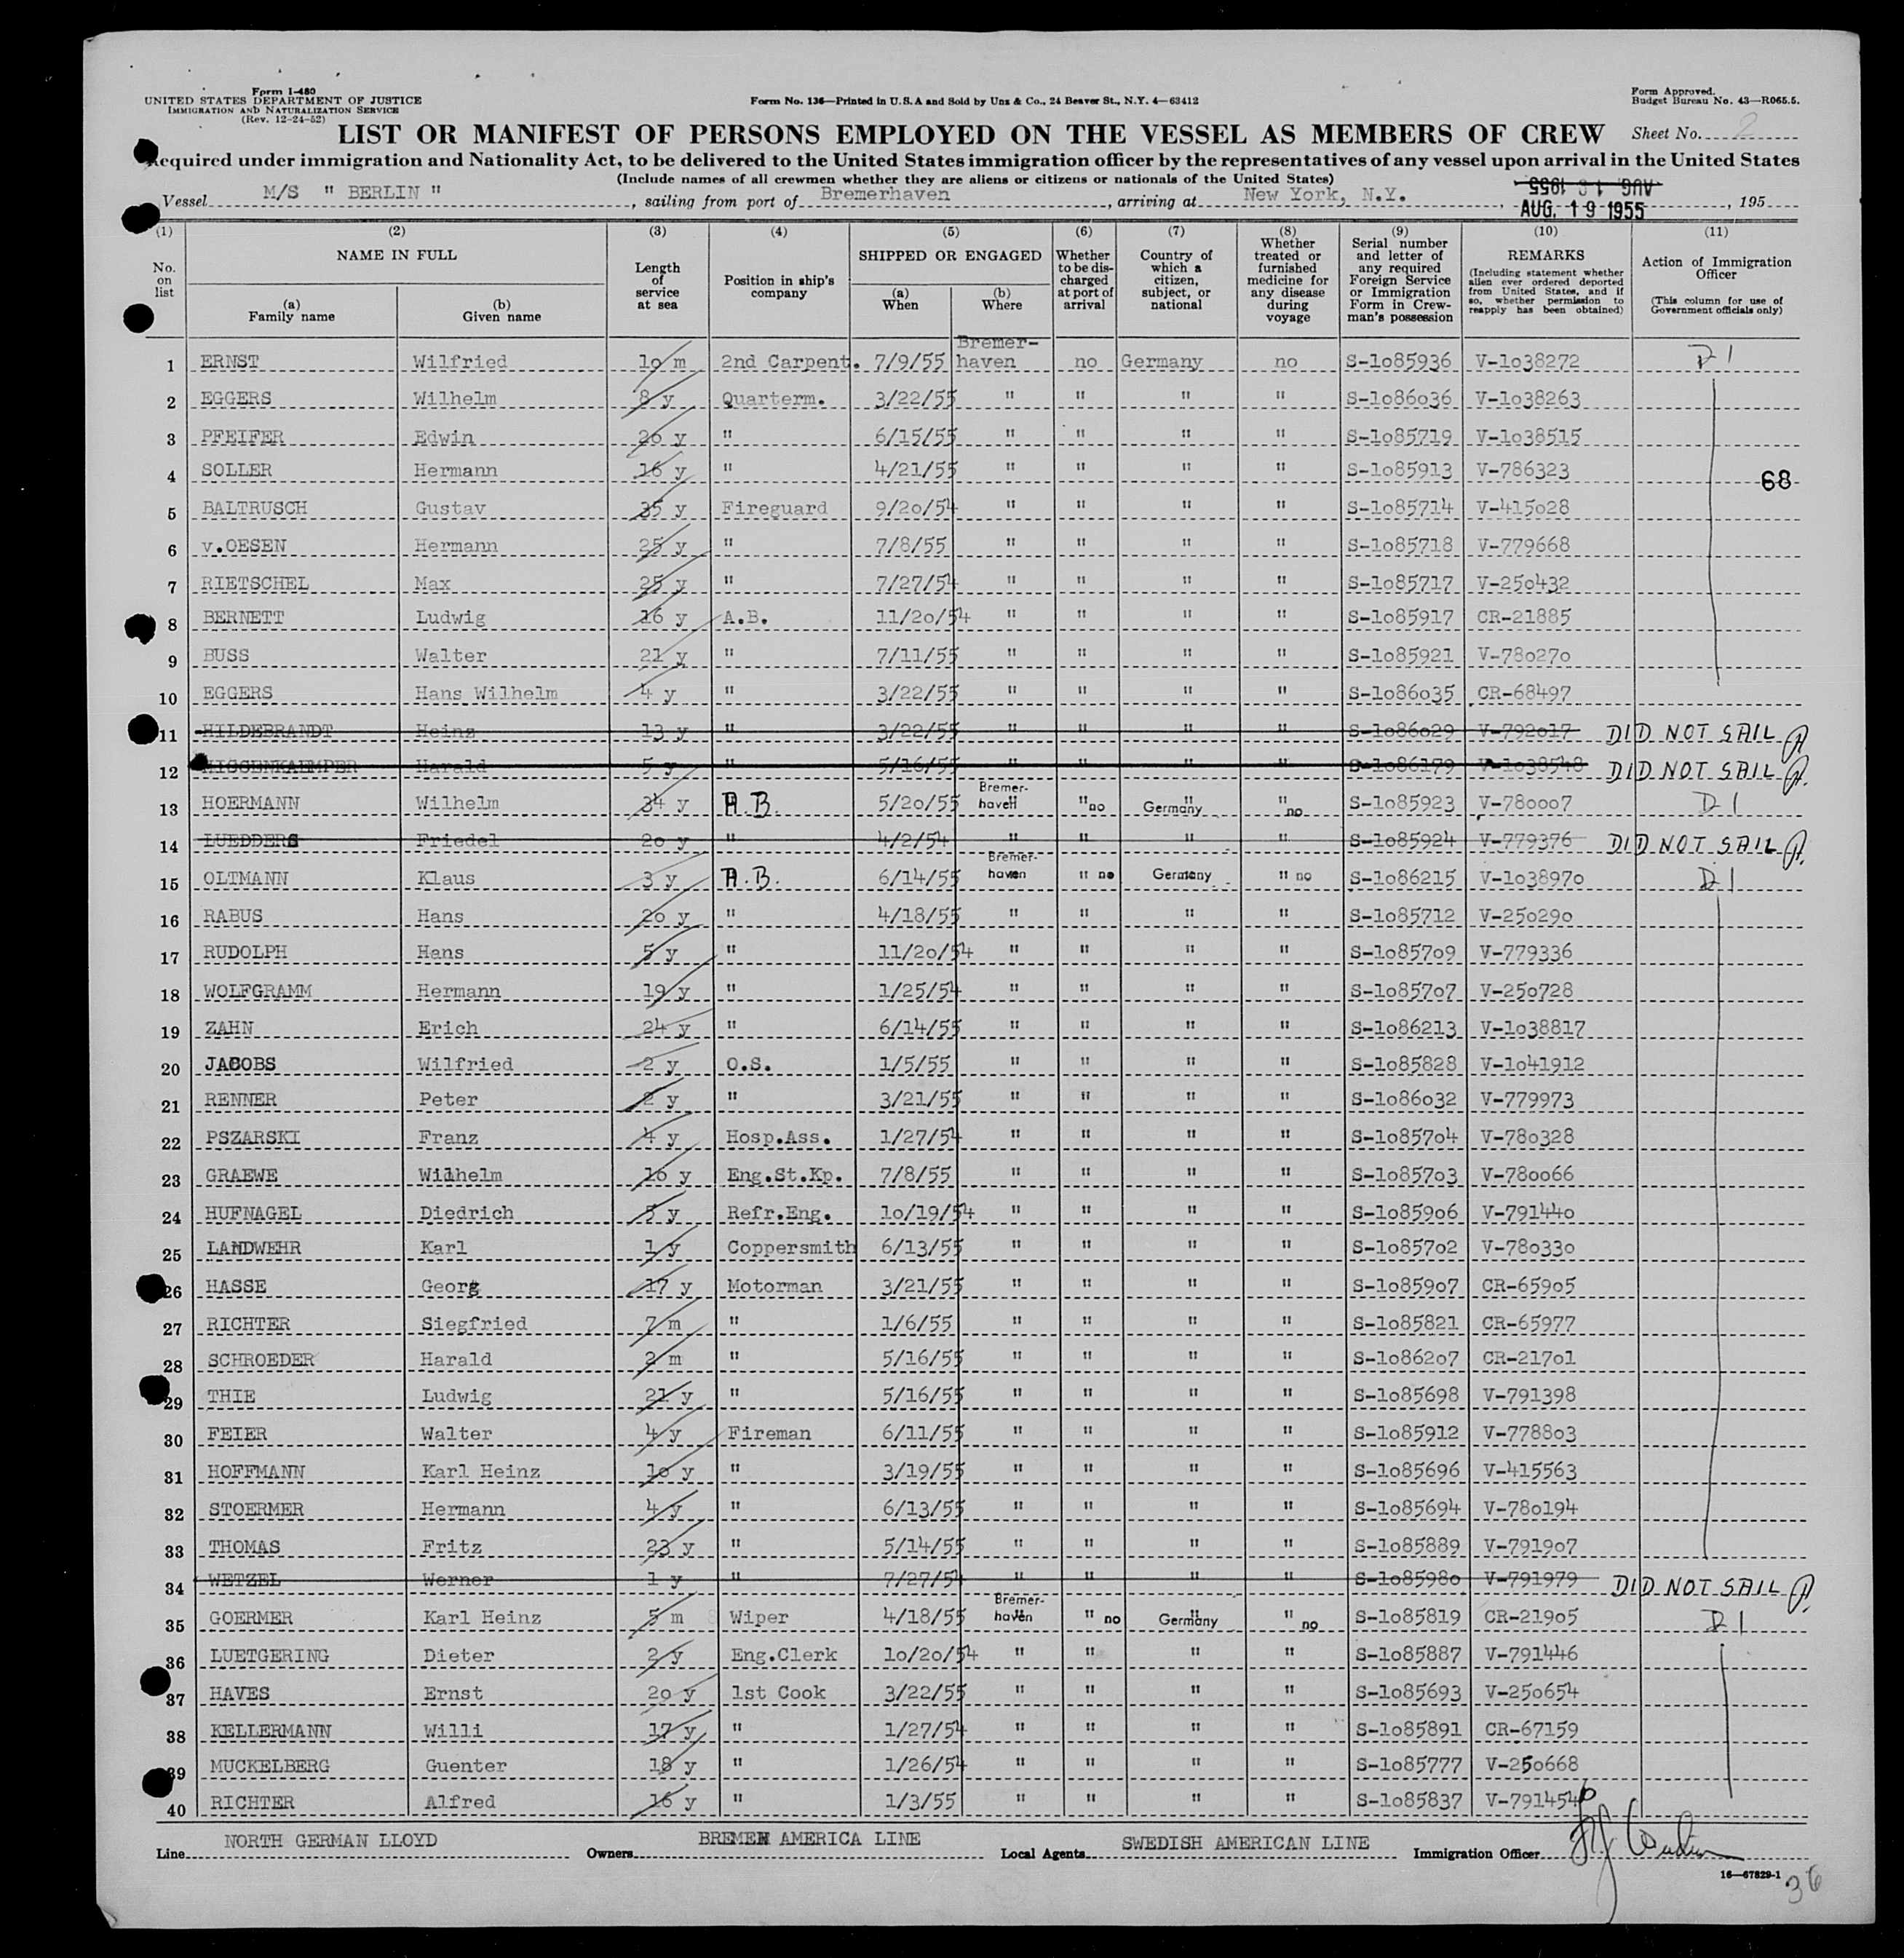 Form I-480
UNITED STATES DEPARTMENT OF JUSTICE
IMMIGRATION AND NATURALIZATION SERVICE
(Rev. 12-24-52)
Form No. 136—Printed in U.S.A and Sold by Unz & Co., 24 Beaver St., N.Y. 4—63412
Form Approved.
Budget Bureau No. 43—R065.5.
LIST OR MANIFEST OF PERSONS EMPLOYED ON THE VESSEL AS MEMBERS OF CREW
Sheet No. 2
Required under immigration and Nationality Act, to be delivered to the United States immigration officer by the representatives of any vessel upon arrival in the United States
(Include names of all crewmen whether they are aliens or citizens or nationals of the United States)
Vessel M/S " BERLIN ", sailing from port of Bremerhaven, arriving at New York, N.Y., AUG. 19 1955, 195
(1) No. on list
(2) NAME IN FULL
(a) Family name
(b) Given name
(3) Length of service at sea
(4) Position in ship's company
(5) SHIPPED OR ENGAGED
(a) When
(b) Where
(6) Whether to be discharged at port of arrival
(7) Country of which a citizen, subject, or national
(8) Whether treated or furnished medicine for any disease during voyage
(9) Serial number and letter of any required Foreign Service or Immigration Form in Crewman's possession
(10) REMARKS (Including statement whether alien ever ordered deported from United States, and if so, whether permission to reapply has been obtained)
(11) Action of Immigration Officer (This column for use of Government officials only)
1 ERNST Wilfried 1o m 2nd Carpent. 7/9/55 Bremerhaven no Germany no S-1o85936 V-1o38272 D 1
2 EGGERS Wilhelm 8 y Quarterm. 3/22/55 " " " " S-1o86o36 V-1o38263
3 PFEIFER Edwin 2o y " 6/15/55 " " " " S-1o85719 V-1o38515
4 SOLLER Hermann 16 y " 4/21/55 " " " " S-1o85913 V-786323 68
5 BALTRUSCH Gustav 35 y Fireguard 9/2o/54 " " " " S-1o85714 V-415o28
6 v.OESEN Hermann 25 y " 7/8/55 " " " " S-1o85718 V-779668
7 RIETSCHEL Max 25 y " 7/27/54 " " " " S-1o85717 V-25o432
8 BERNETT Ludwig 16 y A.B. 11/2o/54 " " " " S-1o85917 CR-21885
9 BUSS Walter 21 y " 7/11/55 " " " " S-1o85921 V-78o27o
10 EGGERS Hans Wilhelm 4 y " 3/22/55 " " " " S-1o86o35 CR-68497
11 HILDEBRANDT Heinz 13 y " 3/22/55 " " " " S-1o86o29 V-792o17 DID NOT SAIL
12 HIGGENKAEMPER Harald 5 y " 5/16/55 " " " " S-1o86179 V-1o38548 DID NOT SAIL
13 HOERMANN Wilhelm 34 y A.B. 5/2o/55 Bremerhaven " no Germany " no S-1o85923 V-78ooo7 D 1
14 LUEDDERS Friedel 2o y " 4/2/54 " " " " S-1o85924 V-779376 DID NOT SAIL
15 OLTMANN Klaus 3 y A.B. 6/14/55 Bremerhaven " no Germany " no S-1o86215 V-1o3897o D 1
16 RABUS Hans 2o y " 4/18/55 " " " " S-1o85712 V-25o29o
17 RUDOLPH Hans 5 y " 11/2o/54 " " " " S-1o857o9 V-779336
18 WOLFGRAMM Hermann 19 y " 1/25/54 " " " " S-1o857o7 V-25o728
19 ZAHN Erich 24 y " 6/14/55 " " " " S-1o86213 V-1o38817
20 JACOBS Wilfried 2 y O.S. 1/5/55 " " " " S-1o85828 V-1o41912
21 RENNER Peter 2 y " 3/21/55 " " " " S-1o86o32 V-779973
22 PSZARSKI Franz 4 y Hosp.Ass. 1/27/54 " " " " S-1o857o4 V-78o328
23 GRAEWE Wilhelm 16 y Eng.St.Kp. 7/8/55 " " " " S-1o857o3 V-78oo66
24 HUFNAGEL Diedrich 5 y Refr.Eng. 1o/19/54 " " " " S-1o859o6 V-79144o
25 LANDWEHR Karl 1 y Coppersmith 6/13/55 " " " " S-1o857o2 V-78o33o
26 HASSE Georg 17 y Motorman 3/21/55 " " " " S-1o859o7 CR-659o5
27 RICHTER Siegfried 7 m " 1/6/55 " " " " S-1o85821 CR-65977
28 SCHROEDER Harald 2 m " 5/16/55 " " " " S-1o862o7 CR-217o1
29 THIE Ludwig 21 y " 5/16/55 " " " " S-1o85698 V-791398
30 FEIER Walter 4 y Fireman 6/11/55 " " " " S-1o85912 V-7788o3
31 HOFFMANN Karl Heinz 1o y " 3/19/55 " " " " S-1o85696 V-415563
32 STOERMER Hermann 4 y " 6/13/55 " " " " S-1o85694 V-78o194
33 THOMAS Fritz 23 y " 5/14/55 " " " " S-1o85889 V-7919o7
34 WETZEL Werner 1 y " 7/27/54 " " " " S-1o8598o V-791979 DID NOT SAIL
35 GOERMER Karl Heinz 5 m Wiper 4/18/55 Bremerhaven " no Germany " no S-1o85819 CR-219o5 D 1
36 LUETGERING Dieter 2 y Eng.Clerk 1o/2o/54 " " " " S-1o85887 V-791446
37 HAVES Ernst 2o y 1st Cook 3/22/55 " " " " S-1o85693 V-25o654
38 KELLERMANN Willi 17 y " 1/27/54 " " " " S-1o85891 CR-67159
39 MUCKELBERG Guenter 18 y " 1/26/54 " " " " S-1o85777 V-25o668
40 RICHTER Alfred 16 y " 1/3/55 " " " " S-1o85837 V-791454
Line NORTH GERMAN LLOYD Owners BREMEN AMERICA LINE Local Agents SWEDISH AMERICAN LINE Immigration Officer
16—67829-1
36